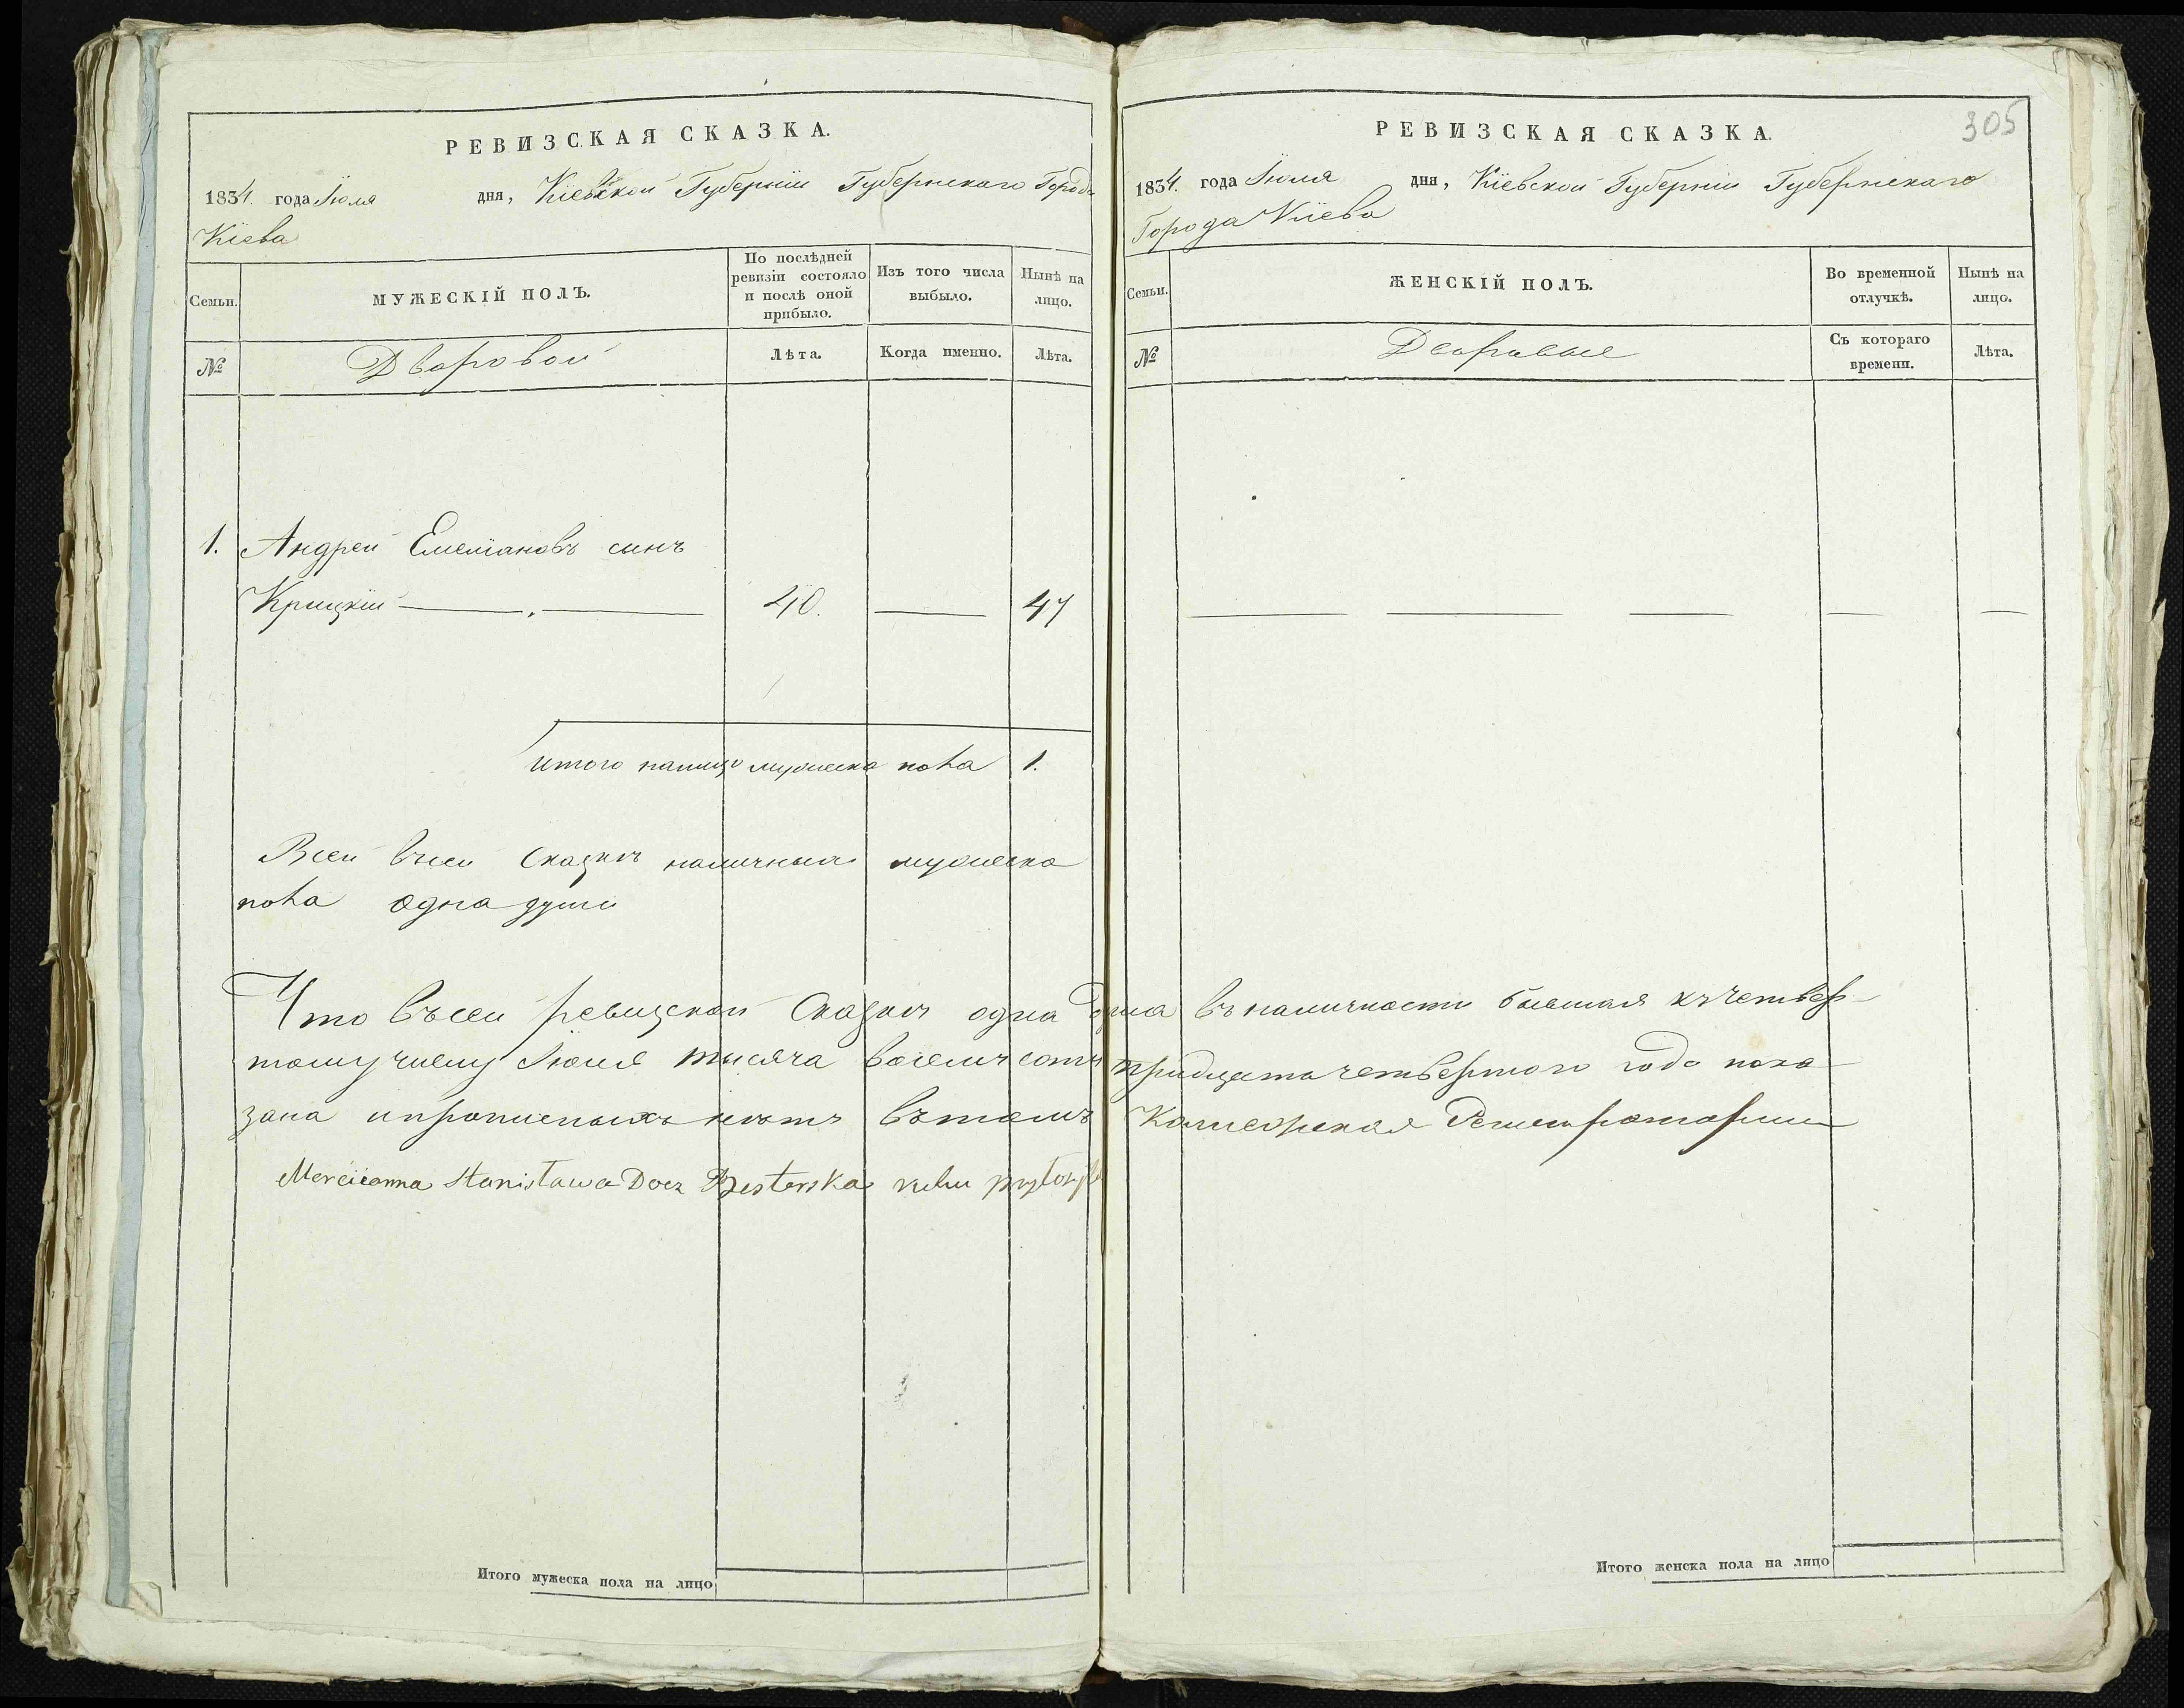 РЕВИЗСКАЯ СКАЗКА.
1834. года Іюля дня, Кіевской Губерніи Губернскаго Города
Кіева
Семьи.
МУЖЕСКІЙ ПОЛЪ.
По послѣдней ревизіи состояло и послѣ оной прибыло.
Изъ того числа выбыло.
Нынѣ на лицо.
№
Дворовой
Лѣта.
Когда именно.
Лѣта.
1. Андрей Емелiановъ синъ
Крицкій 40. 47
итого налицо мужеска пола 1.
Всей всей Сказки наличныхъ мужеска
пола одна душа
Что въ сей ревизской Сказки одна душа въ наличности бывшая къ четвер-
тому числу Іюля тысяча восемъ сотъ тридцата четвертого года пока-
зана и прописныхъ нетъ въ томъ Колежская Регистраторша
Marciianna Stanisława Docz
Итого мужеска пола на лицо
305
РЕВИЗСКАЯ СКАЗКА.
1834. года Іюля дня, Кіевской Губерніи Губернскаго
Города Кіева
Семьи.
ЖЕНСКІЙ ПОЛЪ.
Во временной отлучкѣ.
Нынѣ на лицо.
№
Дворовые
Съ котораго времени.
Лѣта.
Итого женска пола на лицо